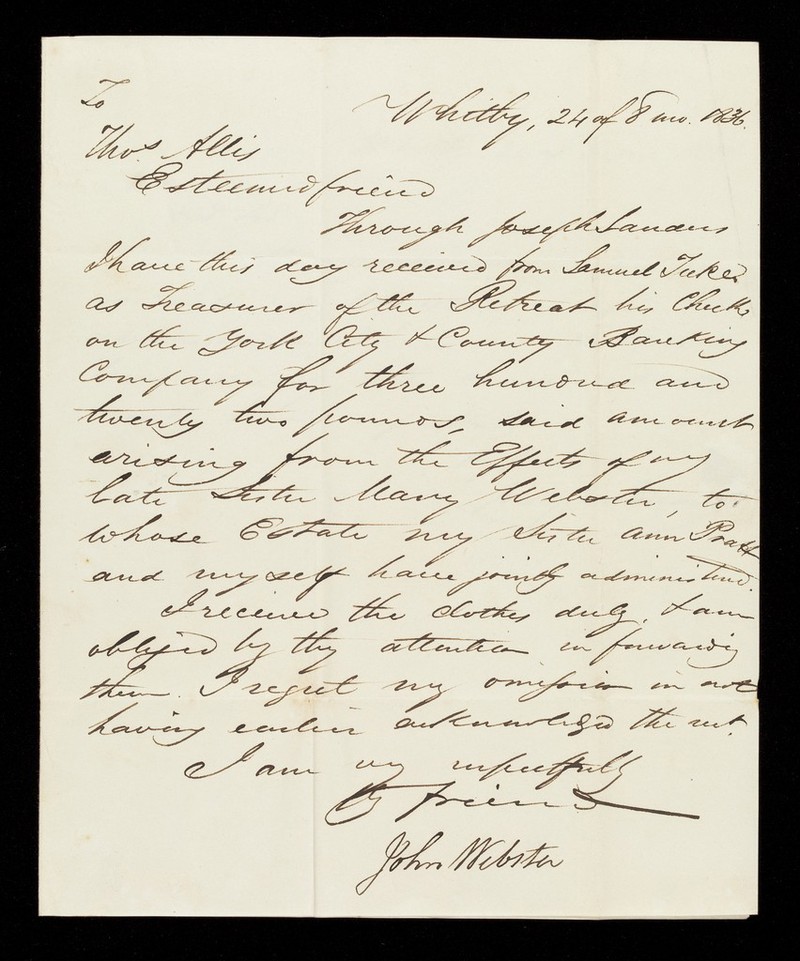 To
Whitby, 24 of 8 mo. 1836.
Thos. Allis
Esteemed friend
Through Joseph Sanders
I have this day received from Samuel Tuke
as Treasurer of the Retreat his Check
on the York City & County Banking
Company for three hundred and
twenty two pounds, said amount
arising from the Effects of my
late Sister Mary Webster, to
whose Estate my Sister Ann Pratt
and myself have jointly administered.
I received the clothes duly, & am
obliged by thy attention in forwarding
them. I regret my omission in not
having earlier acknowledged the rect.
I am very respectfully
thy friend
John Webster